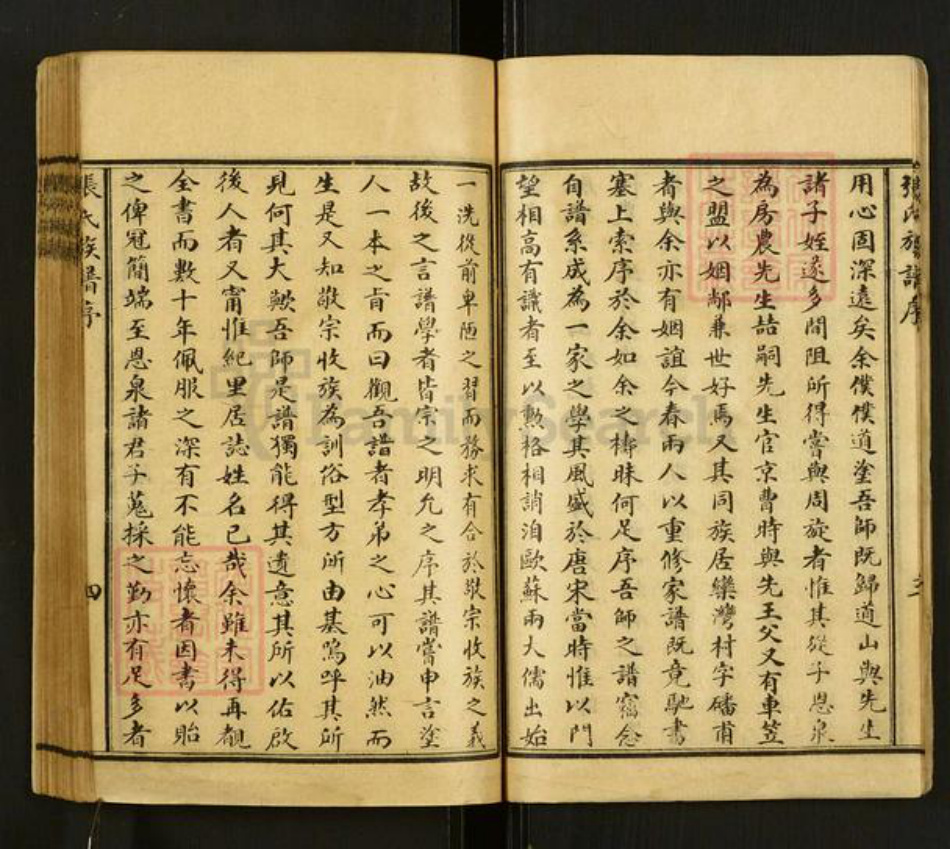 張氏族譜序
三
用心固深遠矣余僕僕道塗吾師既歸道山與先生
諸子姪遂多間阻所得嘗與周旋者惟其從子恩泉
為房農先生喆嗣先生官京曹時與先王父又有車笠
之盟以姻鄰兼世好焉又其同族居欒灣村字磻甫
者與余亦有姻誼今春兩人以重修家譜既竟馳書
塞上索序於余如余之檮昧何足序吾師之譜竊念
自譜系成為一家之學其風盛於唐宋當時惟以門
望相高有識者至以勳格相誚洎歐蘇兩大儒出始
一洗從前卑陋之習而務求有合於敬宗收族之義
故後之言譜學者皆宗之明允之序其譜嘗申言塗
人一本之旨而曰觀吾譜者孝弟之心可以油然而
生是又知敬宗收族為訓俗型方所由基嗚呼其所
見何其大歟吾師是譜獨能得其遺意其所以佑啟
後人者又甯惟紀里居誌姓名已哉余雖未得再覩
全書而數十年佩服之深有不能忘懷者因書以貽
之俾冠簡端至恩泉諸君子蒐採之勤亦有足多者
張氏族譜序
四
FamilySearch